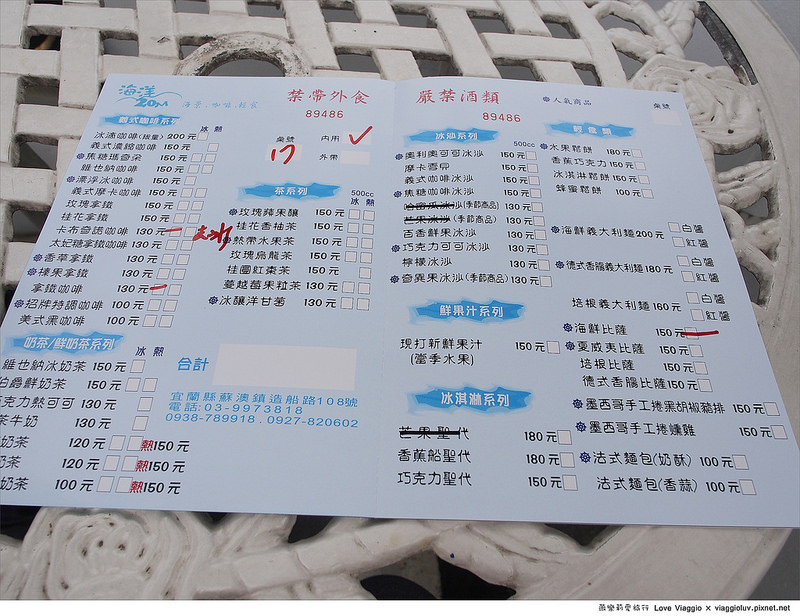 海洋
20M
海景、咖啡、輕食
禁帶外食
89486
桌號
17
內用
外帶
義式咖啡系列
冰 熱
冰滴咖啡(限量) 200元
義式濃縮咖啡 150元
焦糖瑪奇朵 150元
維也納咖啡 150元
漂浮冰咖啡 150元
義式摩卡咖啡 150元
玫瑰拿鐵 150元
桂花拿鐵 150元
卡布奇諾咖啡 130元
去冰
太妃糖拿鐵咖啡 130元
香草拿鐵 130元
榛果拿鐵 130元
拿鐵咖啡 130元
招牌特調咖啡 100元
美式黑咖啡 100元
奶茶/鮮奶茶系列
冰 熱
維也納冰奶茶 150元
伯爵鮮奶茶 150元
巧克力熱可可 130元
茶牛奶 130元
奶茶 120元 熱150元
奶茶 120元 熱150元
奶茶 100元 熱150元
茶系列
500cc
冰 熱
玫瑰蘋果釀 150元
桂花香柚茶 150元
熱帶水果茶 150元
玫瑰烏龍茶 150元
桂圓紅棗茶 150元
蔓越莓果粒茶 130元
冰釀洋甘菊 130元
合計
宜蘭縣蘇澳鎮造船路108號
電話:03-9973818
0938-789918 . 0927-820602
嚴禁酒類
89486
人氣商品
桌號
冰沙系列
500cc
奧利奧可可冰沙 150元
摩卡雪昂 150元
義式咖啡冰沙 150元
焦糖咖啡冰沙 150元
哈密瓜冰沙(季節商品) 130元
芒果冰沙(季節商品) 130元
百香鮮果冰沙 130元
巧克力可可冰沙 130元
檸檬冰沙 130元
奇異果冰沙(季節商品) 130元
鮮果汁系列
現打新鮮果汁 150元
(當季水果)
冰淇淋系列
芒果聖代 180元
香蕉船聖代 180元
巧克力聖代 150元
輕食類
水果鬆餅 180元
香蕉巧克力 150元
冰淇淋鬆餅 150元
蜂蜜鬆餅 100元
海鮮義大利麵 200元 白醬
紅醬
德式香腸義大利麵 180元 白醬
紅醬
培根義大利麵 160元 白醬
紅醬
海鮮比薩 150元
夏威夷比薩 150元
培根比薩 150元
德式香腸比薩 150元
墨西哥手工捲黑胡椒豬排 150元
墨西哥手工捲燻雞 150元
法式麵包(奶酥) 100元
法式麵包(香蒜) 100元
薇樂莉愛旅行 Love Viaggio × viaggioluv.pixnet.net